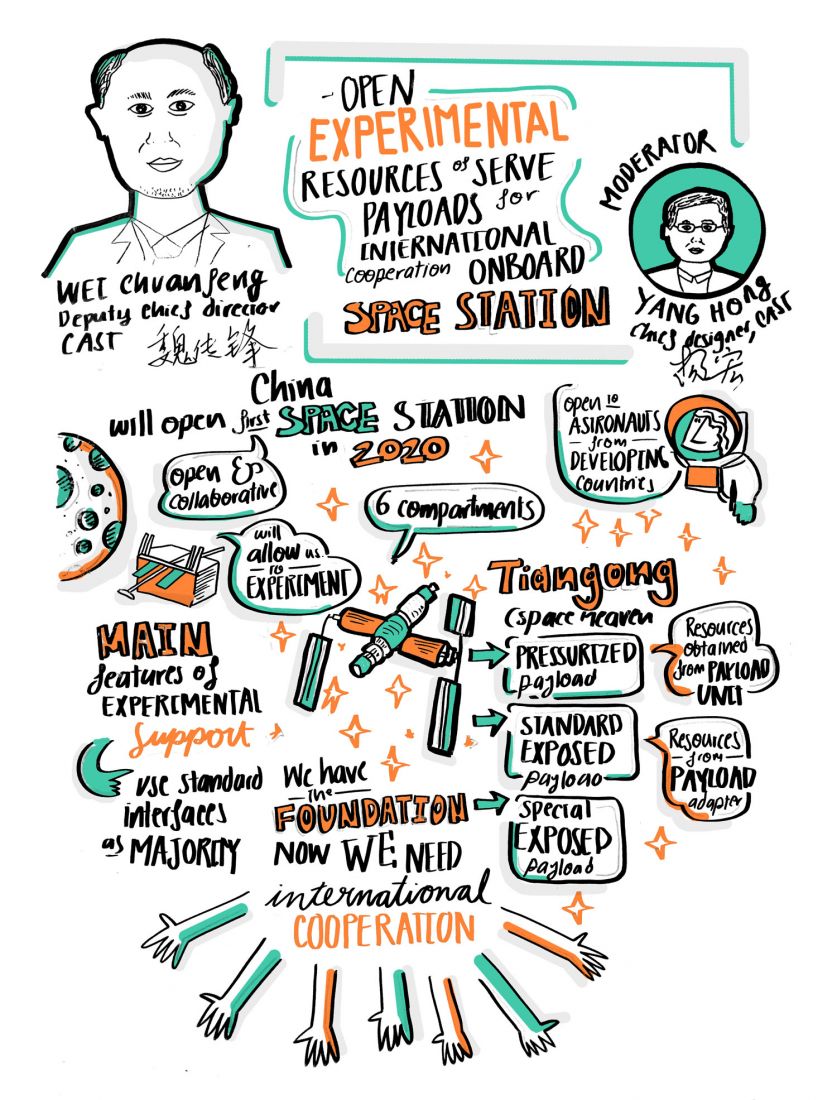 - OPEN
EXPERIMENTAL
RESOURCES of SERVE
PAYLOADS for
INTERNATIONAL
Cooperation ONBOARD
SPACE STATION
WEI Chuanfeng
Deputy chief director
CAST 魏传锋
MODERATOR
YANG HONg
Chief designer, CAST
杨宏
China
will open first SPACE STATION
in 2020
open &
collaborative
open to
ASTRONAUTS
from
DEVELOPING
countries
6 compartments
will
allow us
to
EXPERIMENT
MAIN
features of
EXPERIMENTAL
Support
use standard
interfaces
as MAJORITY
Tiangong
(space heaven
PRESSURIZED
payload
Resources
obtained
from PAYLOAD
UNIT
STANDARD
EXPOSED
payload
Resources
from
PAYLOAD
adapter
Special
EXPOSED
payload
We have
the
FOUNDATION
NOW WE NEED
international
COOPERATION